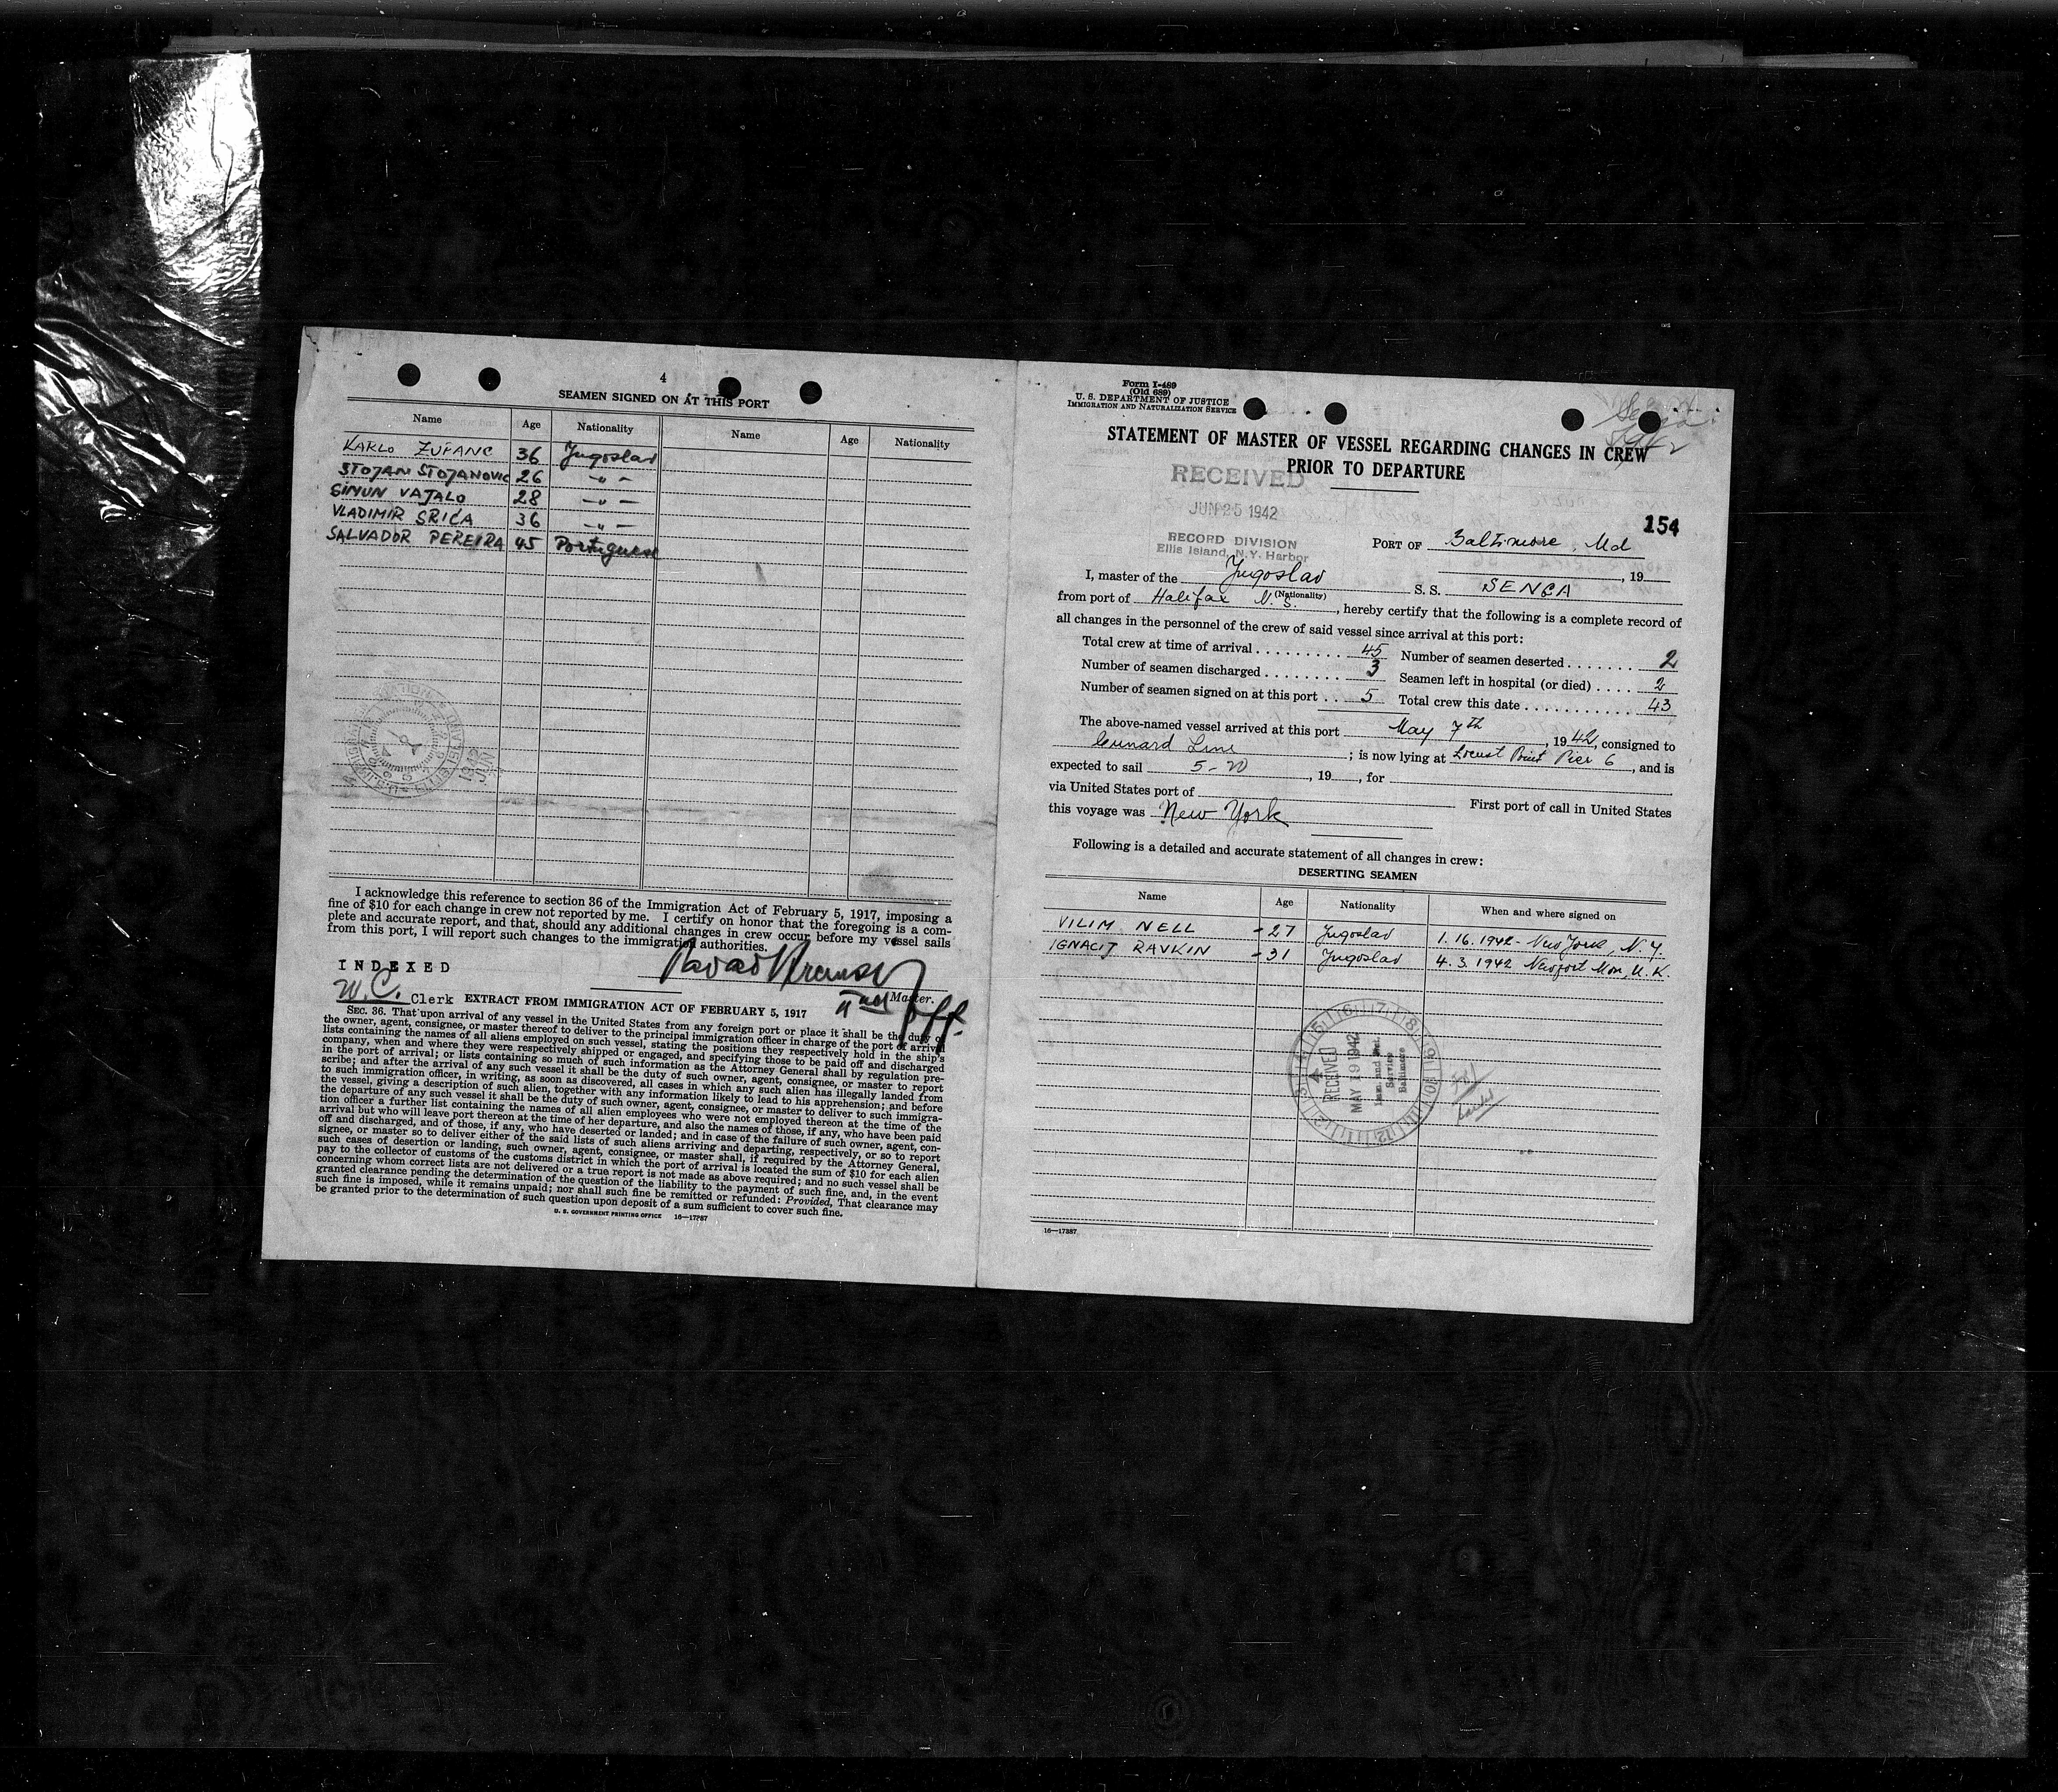 4
SEAMEN SIGNED ON AT THIS PORT
Name Age Nationality Name Age Nationality
KARLO ZUPANC 36 Jugoslav
STOJAN STOJANOVIC 26 -"-
SIMUN VATALO 28 -"-
VLADIMIR SRICA 36 -"-
SALVADOR PEREIRA 45 Portuguese
I acknowledge this reference to section 36 of the Immigration Act of February 5, 1917, imposing a
fine of $10 for each change in crew not reported by me. I certify on honor that the foregoing is a com-
plete and accurate report, and that, should any additional changes in crew occur before my vessel sails
from this port, I will report such changes to the immigration authorities.
INDEXED
Master.
W.C. Clerk EXTRACT FROM IMMIGRATION ACT OF FEBRUARY 5, 1917
SEC. 36. That upon arrival of any vessel in the United States from any foreign port or place it shall be the duty of
the owner, agent, consignee, or master thereof to deliver to the principal immigration officer in charge of the port of arrival
lists containing the names of all aliens employed on such vessel, stating the positions they respectively hold in the ship's
company, when and where they were respectively shipped or engaged, and specifying those to be paid off and discharged
in the port of arrival; or lists containing so much of such information as the Attorney General shall by regulation pre-
scribe; and after the arrival of any such vessel it shall be the duty of such owner, agent, consignee, or master to report
to such immigration officer, in writing, as soon as discovered, all cases in which any such alien has illegally landed from
the vessel, giving a description of such alien, together with any information likely to lead to his apprehension; and before
the departure of any such vessel it shall be the duty of such owner, agent, consignee, or master to deliver to such immigra-
tion officer a further list containing the names of all alien employees who were not employed thereon at the time of the
arrival but who will leave port thereon at the time of her departure, and also the names of those, if any, who have been paid
off and discharged, and of those, if any, who have deserted or landed; and in case of the failure of such owner, agent, con-
signee, or master so to deliver either of the said lists of such aliens arriving and departing, respectively, or so to report
such cases of desertion or landing, such owner, agent, consignee, or master shall, if required by the Attorney General,
pay to the collector of customs of the customs district in which the port of arrival is located the sum of $10 for each alien
concerning whom correct lists are not delivered or a true report is not made as above required; and no such vessel shall be
granted clearance pending the determination of the question of the liability to the payment of such fine, and, in the event
such fine is imposed, while it remains unpaid; nor shall such fine be remitted or refunded: Provided, That clearance may
be granted prior to the determination of such question upon deposit of a sum sufficient to cover such fine.
U. S. GOVERNMENT PRINTING OFFICE 16—17387
Form I-489
(Old 689)
U. S. DEPARTMENT OF JUSTICE
IMMIGRATION AND NATURALIZATION SERVICE
STATEMENT OF MASTER OF VESSEL REGARDING CHANGES IN CREW
PRIOR TO DEPARTURE
RECEIVED
JUN 25 1942
RECORD DIVISION
Ellis Island, N.Y. Harbor
154
PORT OF Baltimore, Md
, 19
I, master of the Jugoslav S. S. SENGA
(Nationality)
from port of Halifax N. S. , hereby certify that the following is a complete record of
all changes in the personnel of the crew of said vessel since arrival at this port:
Total crew at time of arrival 45 Number of seamen deserted 2
Number of seamen discharged 3 Seamen left in hospital (or died) 2
Number of seamen signed on at this port 5 Total crew this date 43
The above-named vessel arrived at this port May 7th, 1942, consigned to
Cunard Line ; is now lying at Locust Point Pier 6, and is
expected to sail 5-20, 19 , for
via United States port of First port of call in United States
this voyage was New York
Following is a detailed and accurate statement of all changes in crew:
DESERTING SEAMEN
Name Age Nationality When and where signed on
VILIM NELL -27 Jugoslav 1.16.1942- New York, N.Y.
IGNACIJ RAVKIN -31 Jugoslav 4.3.1942 Newport Mon, U.K.
RECEIVED
MAY 19 1942
Imm and Nat.
Service
Baltimore
16—17387